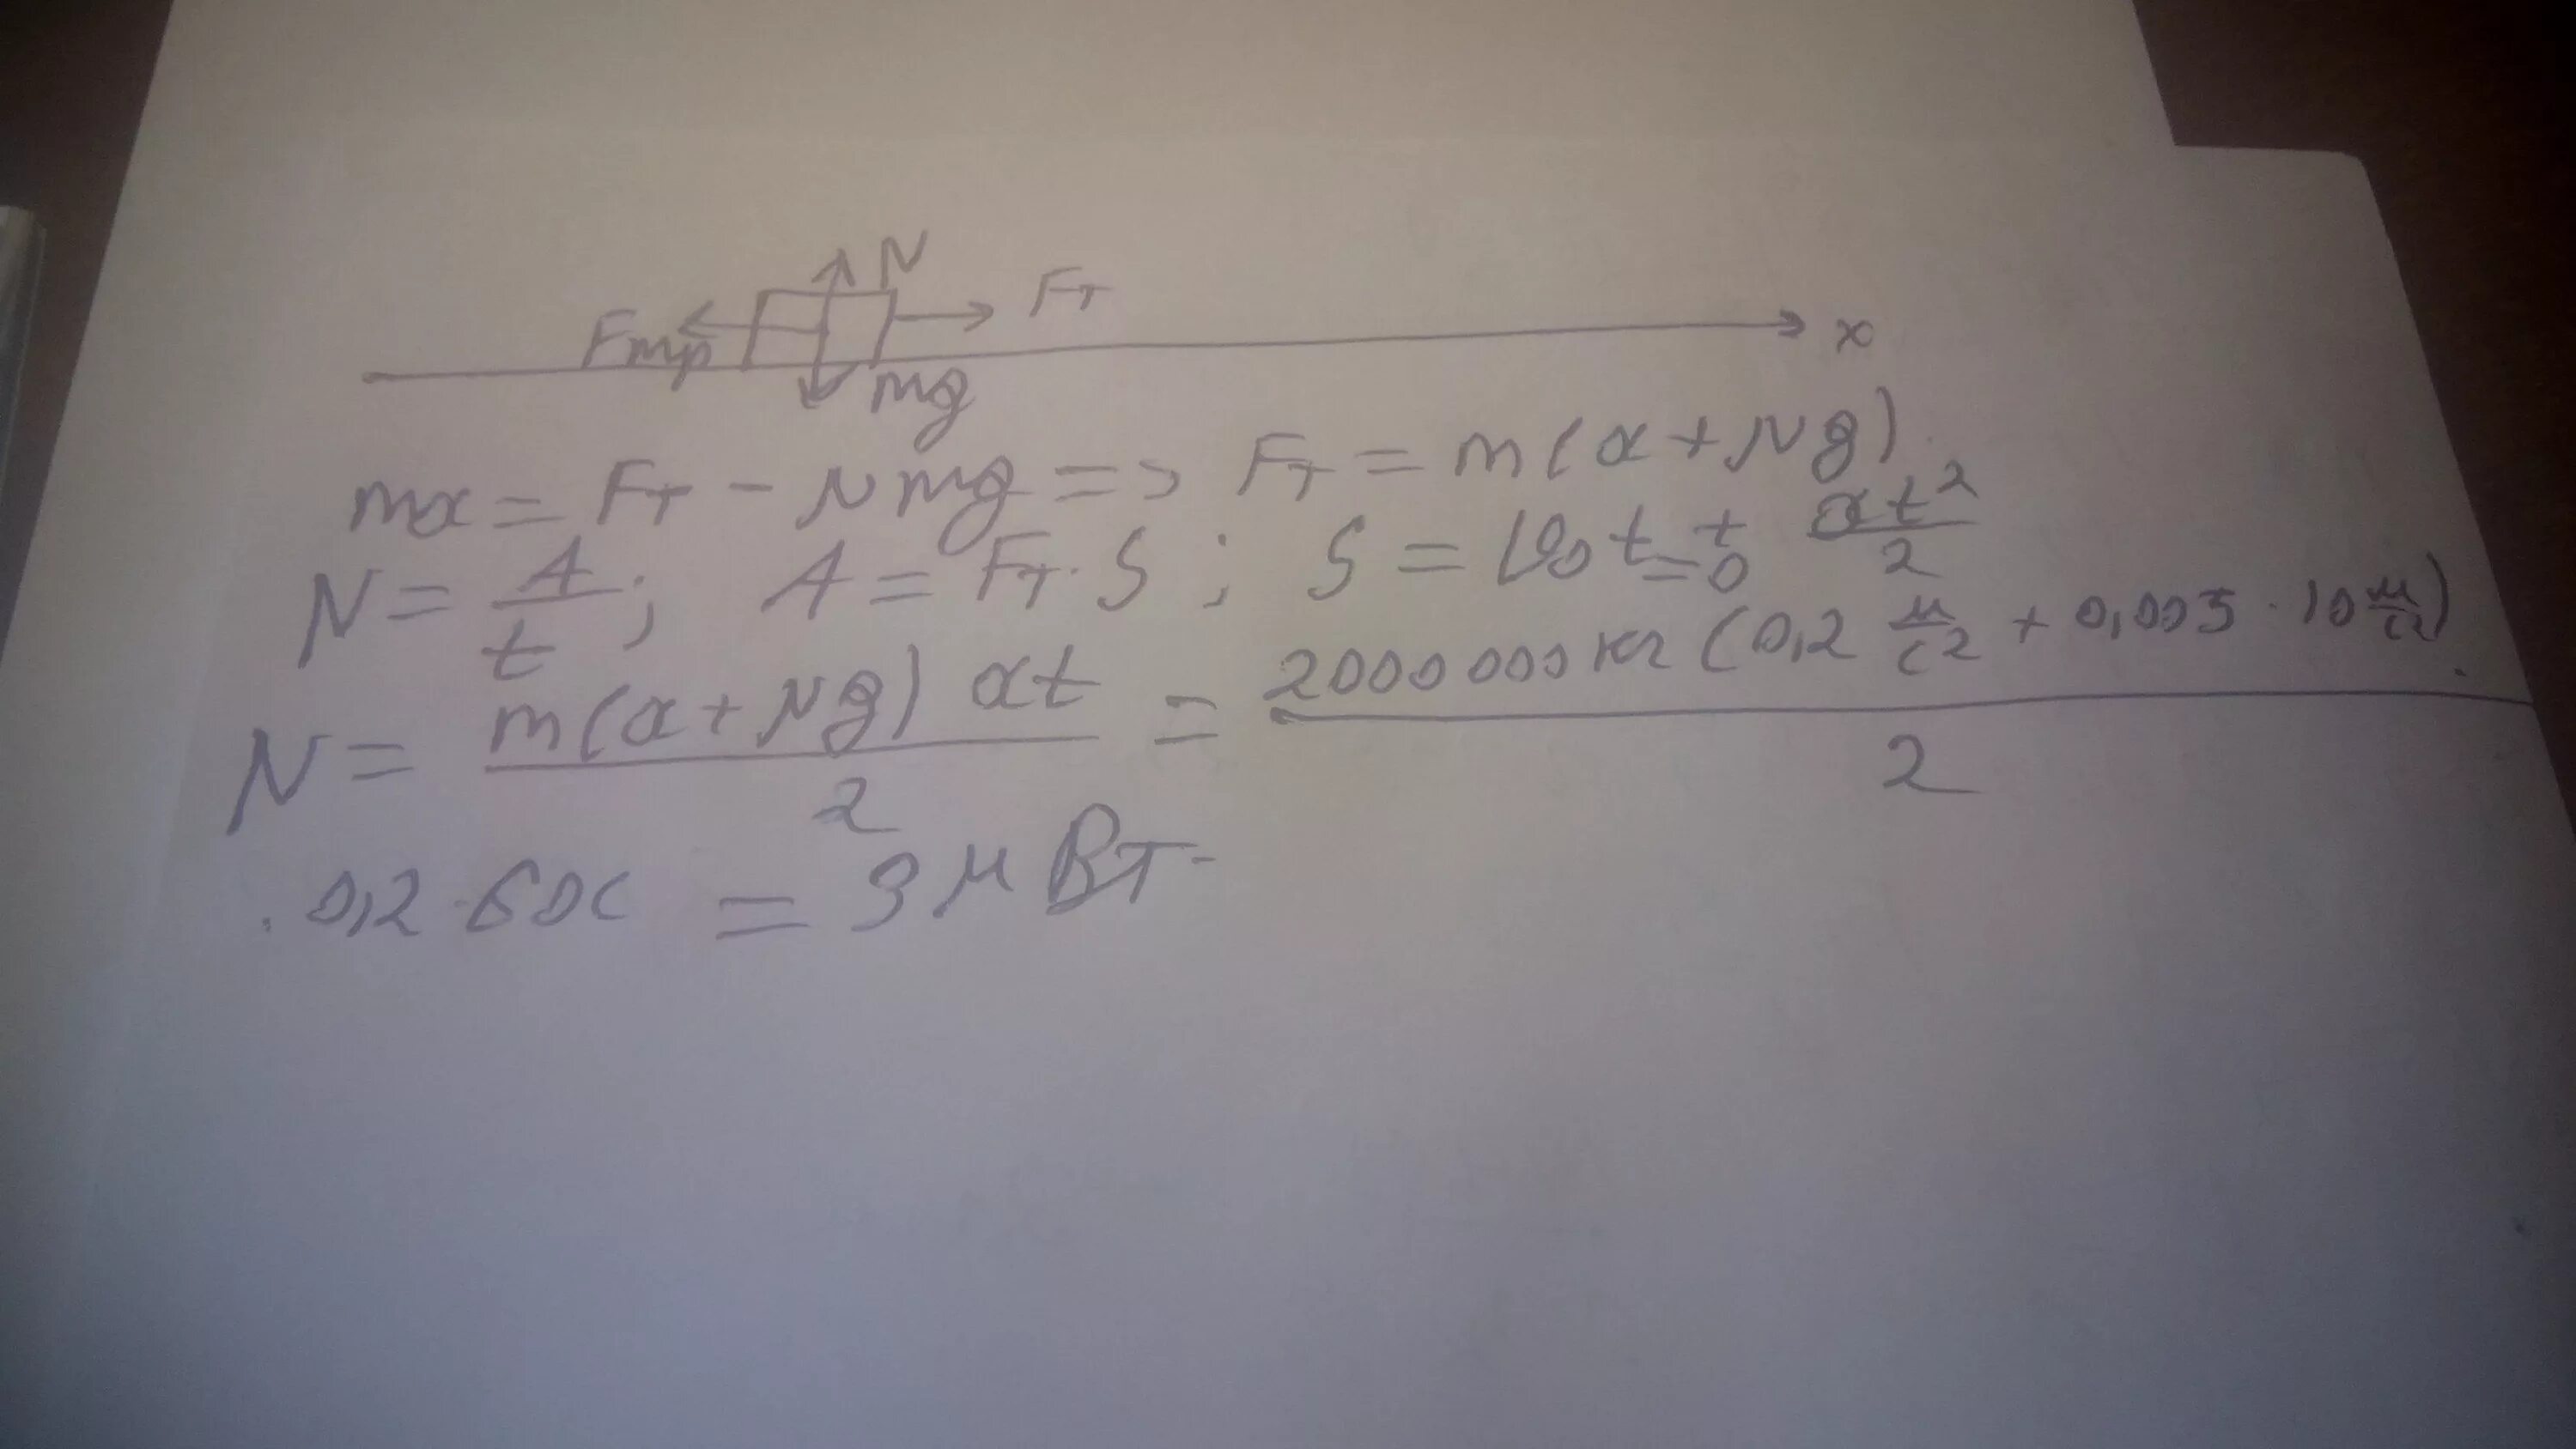 N
Fтр Fт x
mg
ma = Fт - μmg => Fт = m(a + μg)
N = A/t; A = Fт · S; S = V₀t + at²/2
= 0
N = m(a + μg) at / 2 = 2000 000 кг (0,2 м/с2 + 0,005 · 10 м/с2) · / 2
· 0,2 · 60с = 3 М Вт